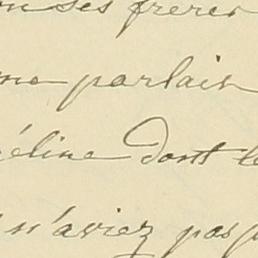 ses freres
me parlait
éline dont le
n'aviez pas p